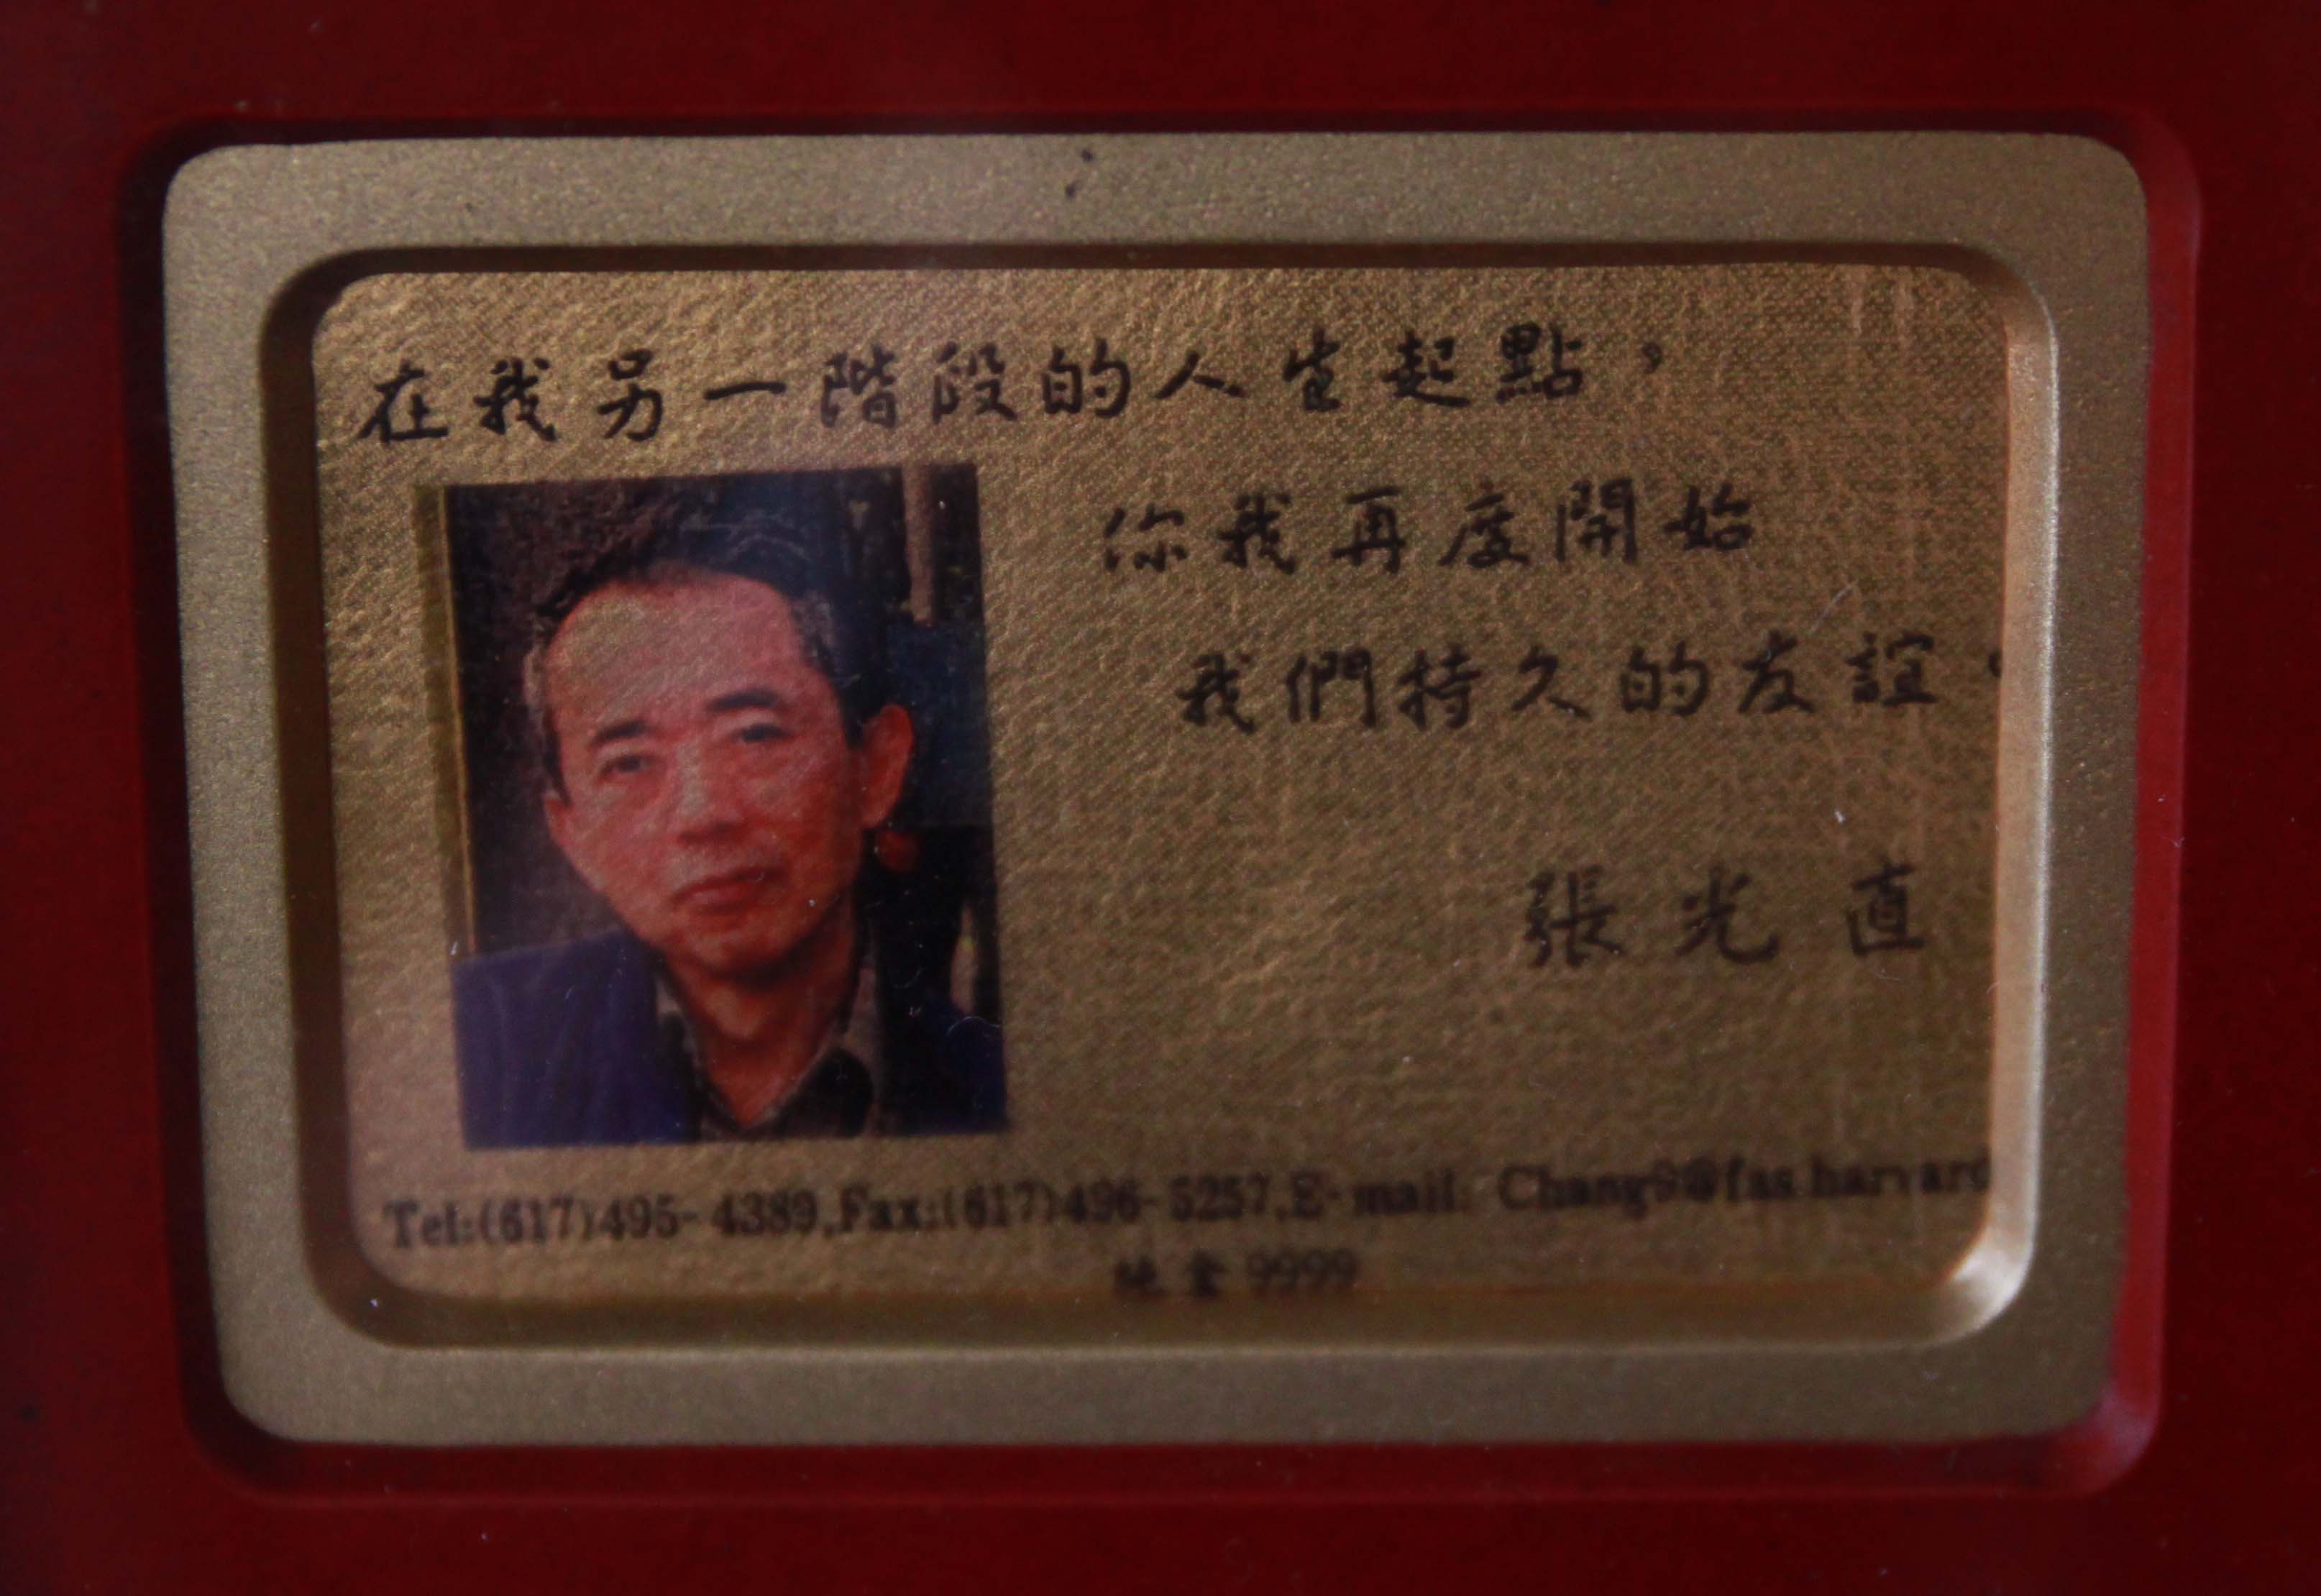 在我另一階段的人生起點，
你我再度開始
我們持久的友誼。
張光直
Tel:(617)495-4389,Fax:(617)496-5257,E-mail: Chang9@fas.harvard
純金9999